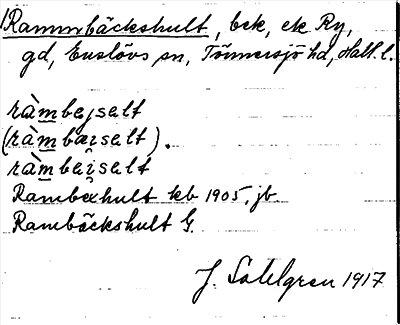 Rammbäckshult, bck, ek Ry,
gd, Enslövs sn, Tönnersjö hd, Hall. l.
ràmbejselt
(ràmbaiselt).
ràmbeiselt
Rambexhult kb 1905, jb
Rambäckshult G.
J. Sahlgren 1917